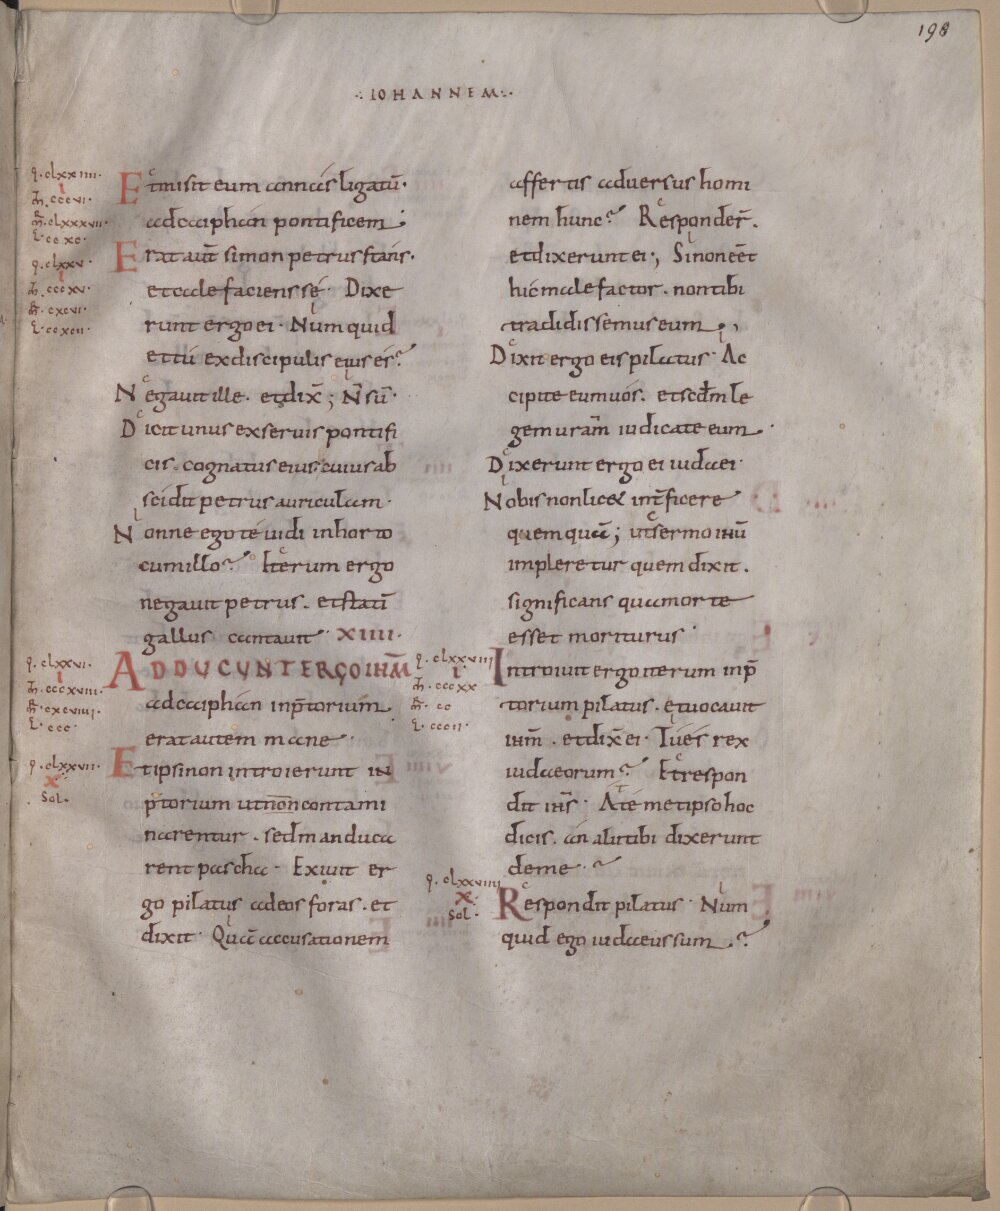 198
·:· IOHANNEM·:·
q· clxxiiii·
i
ih· cccvi·
m̄· clxxxvii·
l· ccxc·
q· clxxv·
i
ih· cccxv·
m̄· cxcvi·
l· ccxcii·
Et misit eum annas ligatū·
ad caiphan pontificem ;
Erat aut̄ simon petrus stans·
et calefaciens sę· Dixe
runt ergo ei· Num quid
et tú ex discipulis eius és?
Negauit ille· et dix̄ ; Ñ sū·
Dicit unus ex seruis pontifi
cis· cognatus eius cuius ab
scidit petrus auriculam·
Nonne ego té uidi in horto
cum illo? Iterum ergo
negauit petrus· et statī
gallus cantauit· XIIII·
q· clxxvi·
i
ih· cccxviii·
m̄· cxcviiii·
l· ccc·
ADDUCUNT ERGO IHM̄
a dcaiphan in p̄torium
erat autem mane·
q· clxxvii·
x
Sol·
Et ipsi non introierunt in
p̄torium ut non contami
narentur· sed manduca
rent pascha· Exiuit er
go pilatus ad eos foras· et
dixit· Quā accusationem
affertis aduersus homi
nem hunc? Responder̄·
et dixerunt ei·, Si non eēt
hic malefactor· non tibi
tradidissemus eum·,
Dixit ergo eis pilatus· Ac
cipite eum uós· et scd̄m le
gem uram̄ iudicate eum·
Dixerunt ergo ei iudaei·
Nobis non licet int̄ficere
quem quā ; ut sermo ihū
impleretur quem dixit·
significans qua morte
esset moriturus·
q· clxxviii
i
ih· cccxx
m̄· cc
l· cccii·
Introiuit ergo iterum in p̄
torium pilatus· et uocauit
ihm̄· et dix̄ ei· Tú és rex
iudaeorum? Et respon
dit ihs̄· A té metipso hoc
dicis· an alii tibi dixerunt
de me·?
q· clxxviiii
x·
Sol·
Respondit pilatus· Num
quid ego iudaeus sum?